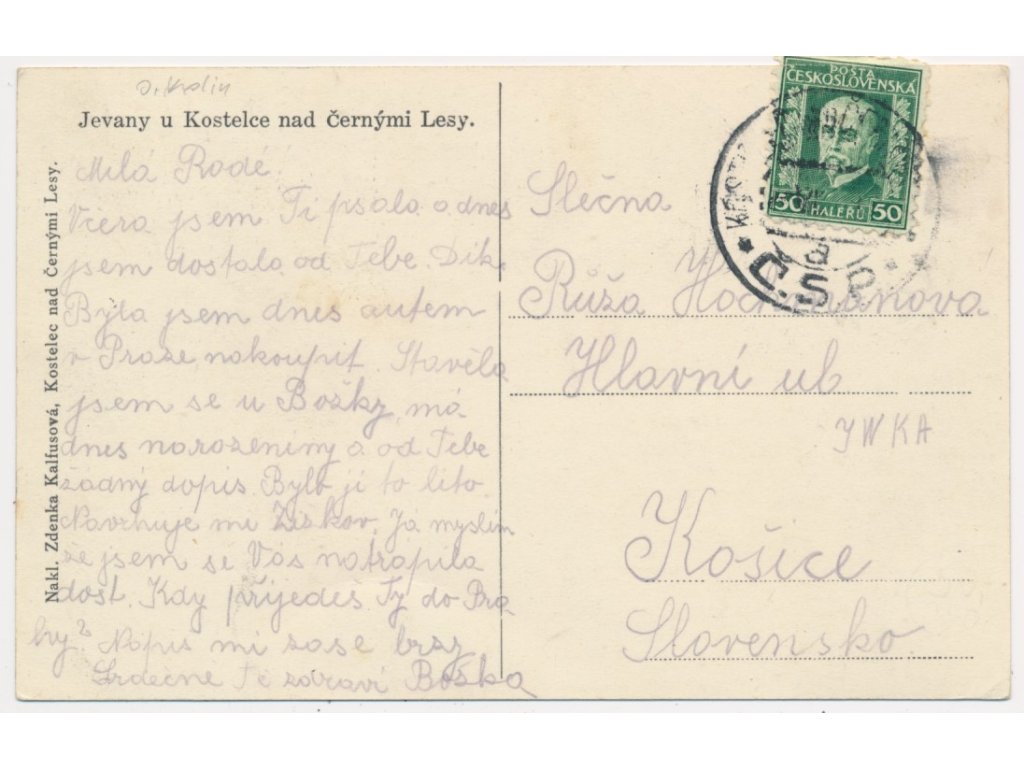 o. Kolín
Jevany u Kostelce nad černými Lesy.
Nakl. Zdenka Kalfusová, Kostelec nad Černými Lesy.
Milá
Včera jsem Ti psala a dnes
jsem dostala od Tebe. Dík.
Byla jsem dnes autem
v Praze nakoupit. Stavěla
jsem se u Božky má
dnes narozeniny a od Tebe
žádný dopis. Bylo jí to líto.
Navrhuje mi Žiskov. Já myslím
že jsem se Vás natrápila
dost. Kdy přijedeš Ty do Pra
hy? Napiš mi zase brzy
Srdečně Tě zdraví Boška
POŠTA
ČESKOSLOVENSKÁ
50 HALÉŘŮ 50
Č.S.P.
a
Slečna
Růža
Hlavní ul
YWKA
Košice
Slovensko.